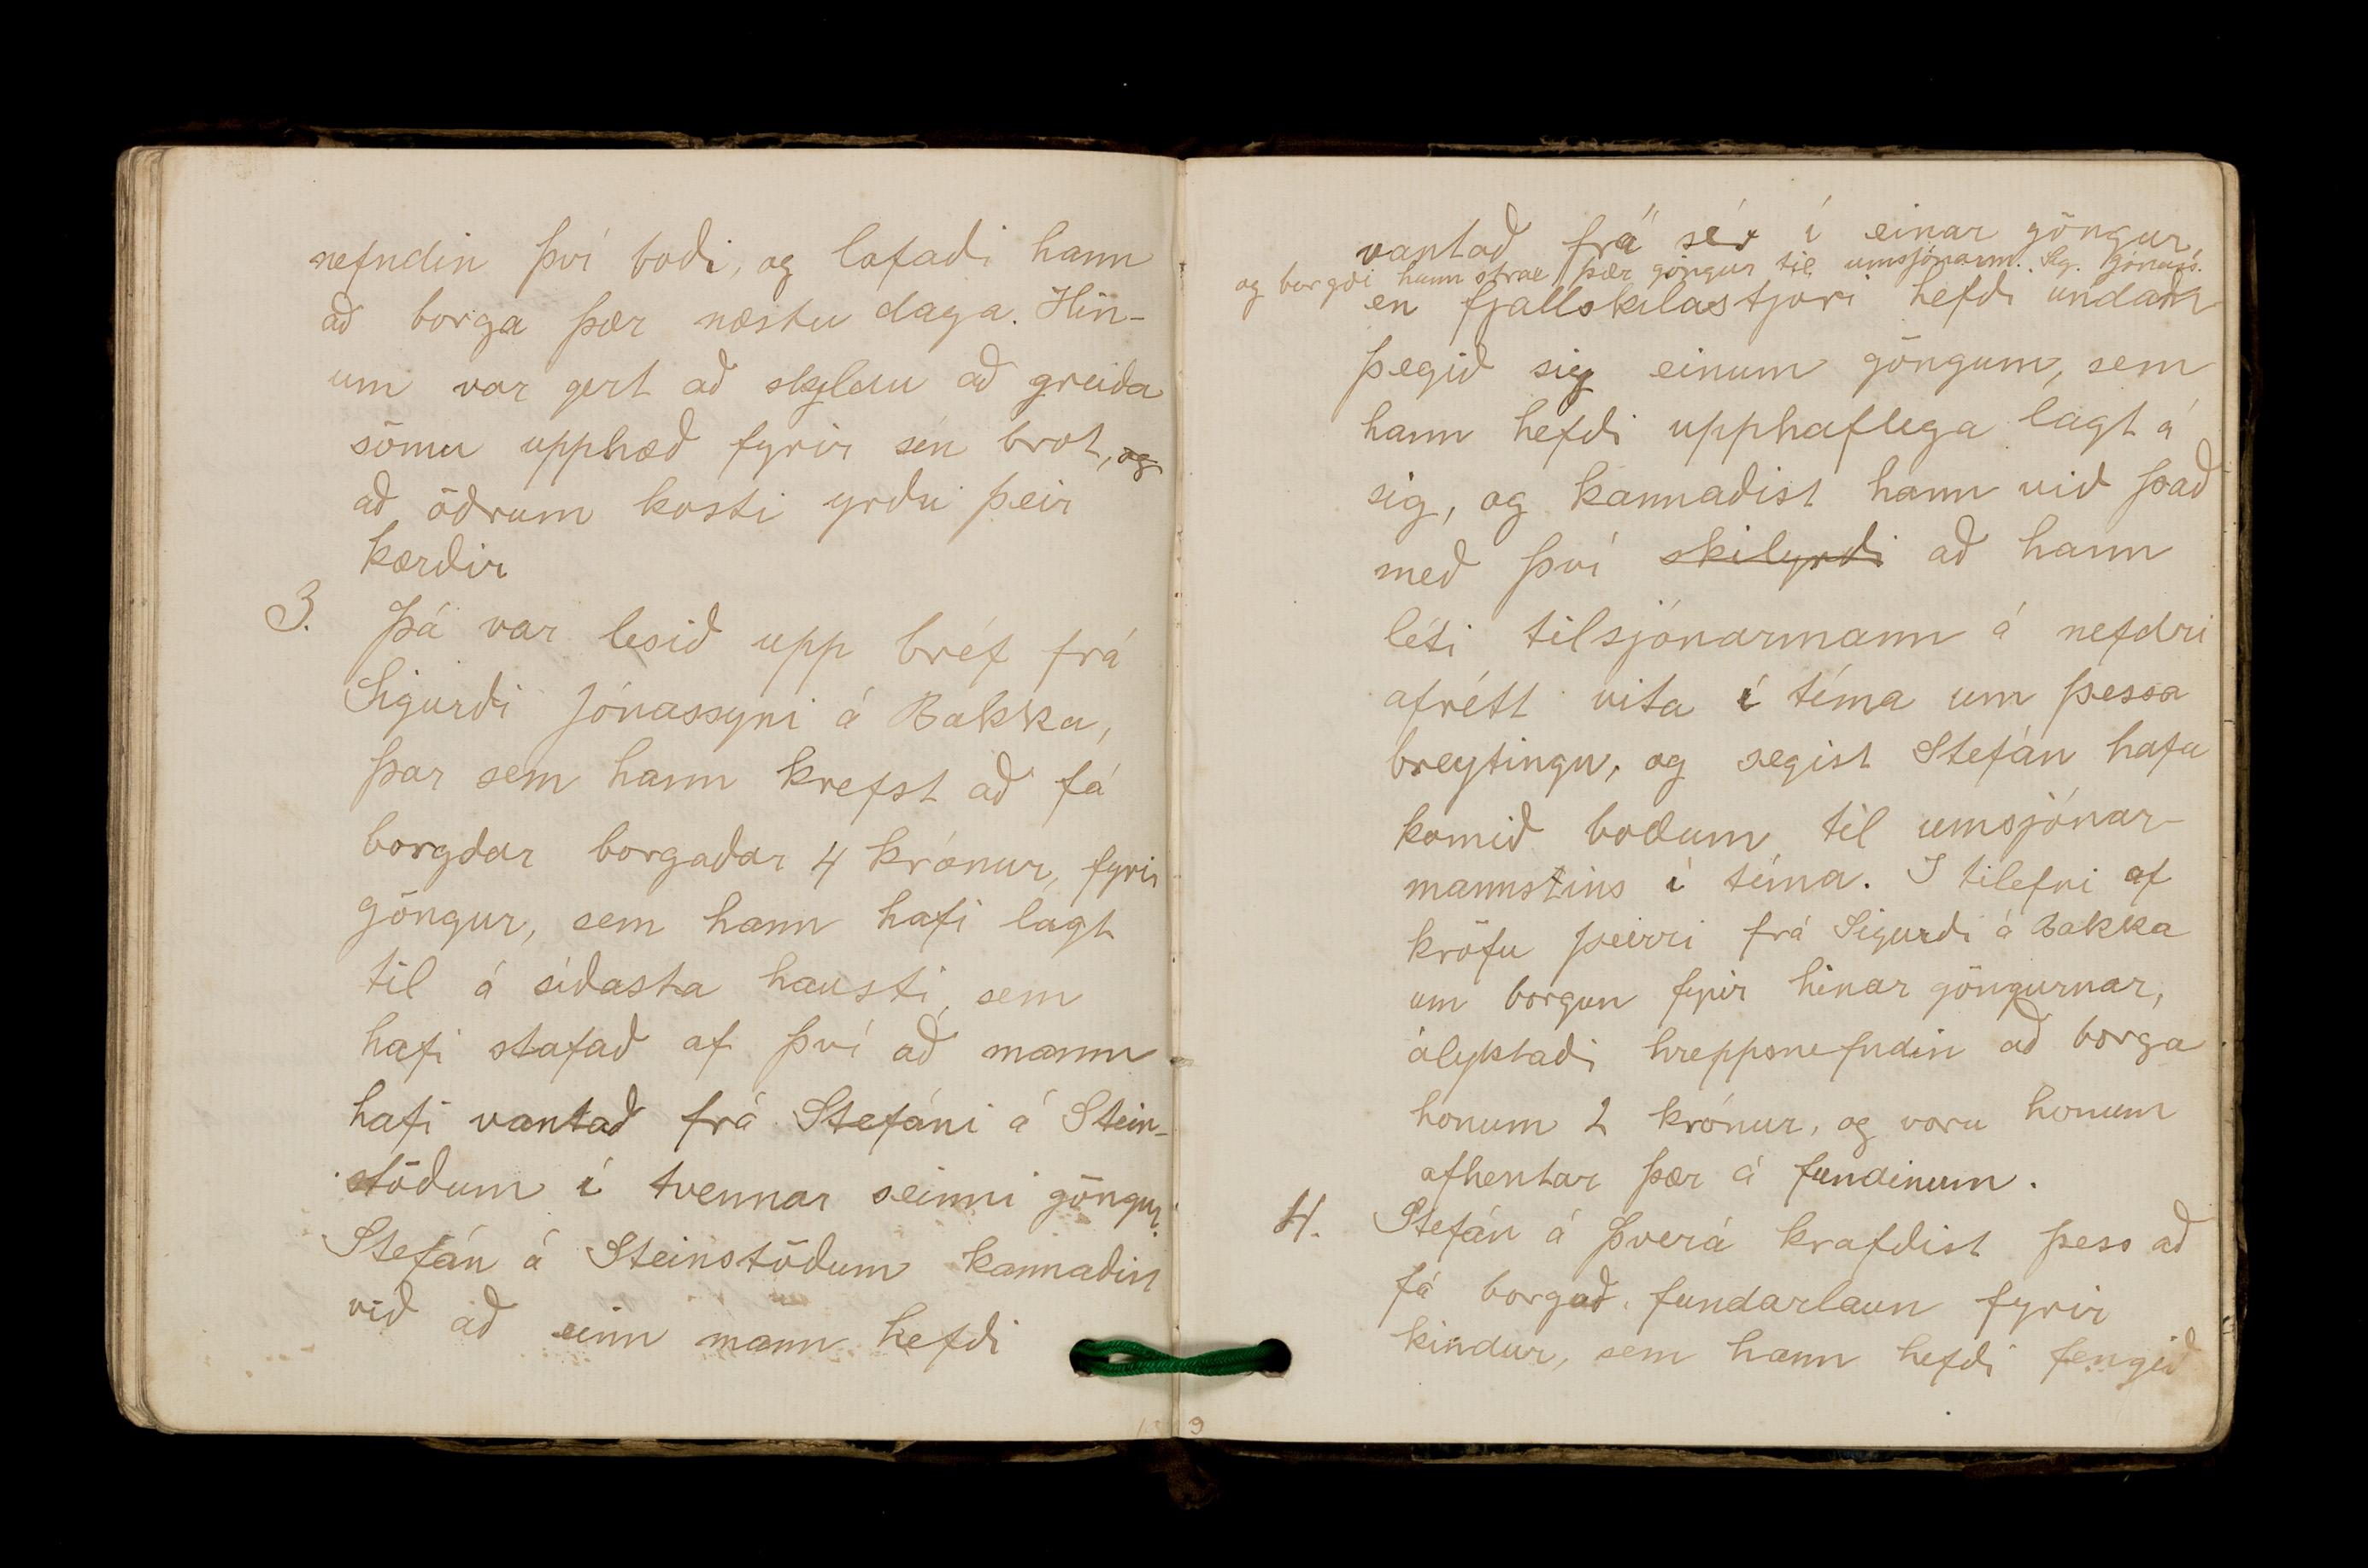 nefndin því boði, og lofaði hann
að borga þær næstu daga. Hin-
um var gert að skyldu að greiða
sömu upphæð fyrir sín brot, og
að öðrum kosti yrðu þeir
kærðir
3. Þá var lesið upp bréf frá
Sigurði Jónassyni á Bakka,
þar sem hann krefst að fá
borgdar borgaðar 4 krónur, fyrir
göngur, sem hann hafi lagt
til á síðasta hausti, sem
hafi stafað af því að mann
hafi vantað frá Stefáni á Stein-
stöðum í tvennar seinni göngur.
Stefán á Steinstöðum kannaðist
við að einn mann hefði
vantað frá sér í einar göngur,
og borgði hann strax þær göngur til umsjónarm. Sig. Jónass.
en fjallskilastjóri hefði undan
þegið sig einum göngum, sem
hann hefði upphaflega lagt á
sig, og kannaðist hann við það
með því skilyrði að hann
léti tilsjónarmann á nefdri
afrétt vita í tíma um þessa
breytingu, og segist Stefán hafa
komið boðum til umsjónar-
mannsins í tíma. I tilefni af
kröfu þeirri frá Sigurði á Bakka
um borgun fyrir hinar göngurnar,
ályktaði hreppsnefndin að borga
honum 2 krónur, og voru honum
afhentar þær á fundinum.
4. Stefán á Þverá krafðist þess að
fá borguð fundarlaun fyrir
kindur, sem hann hefði fengið
9